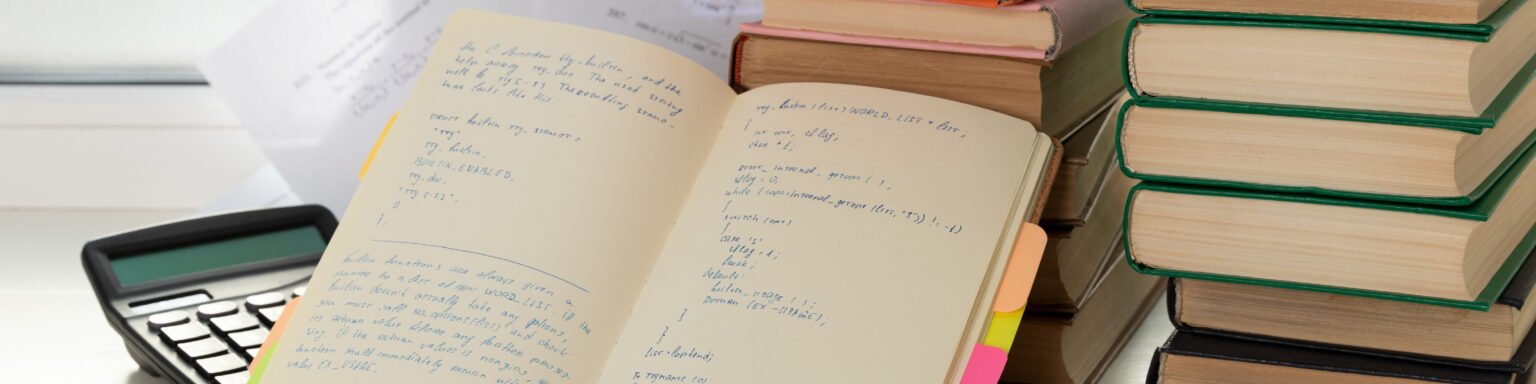 the C function tty_builtin, and the
help array tty_doc. The used string
will be tty [-s]. The resulting struc-
ture looks like this:
struct builtin tty_struct =
"tty"
tty_builtin,
BUILTIN_ENABLED,
tty_doc.
"tty [-s]",
0
};
builtin functions are always given a
pointer to a list of type WORD_LIST. If the
builtin doesn't actually take any options,
you must call no_options(list) and check
its return value before any further process-
ing. If the return value is nonzero,
function should immediately return with
value EX_USAGE.
tty_builtin (list) WORD_LIST * list;
{
int opt, sflag;
char * t;
reset_internal_getopt ( );
sflag = 0;
while ((opt=internal_getopt (list, "s")) != -1)
{
switch (opt)
{
case 's'
sflag = 1;
break;
default:
builtin_usage ( );
return (EX_USAGE);
}
}
list = loptend;
t = ttyname (0);